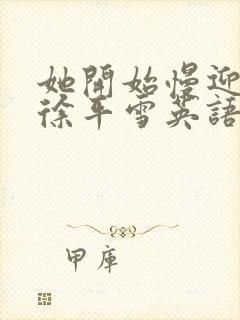 她開始慢迎
徐平雪英語
甲庫